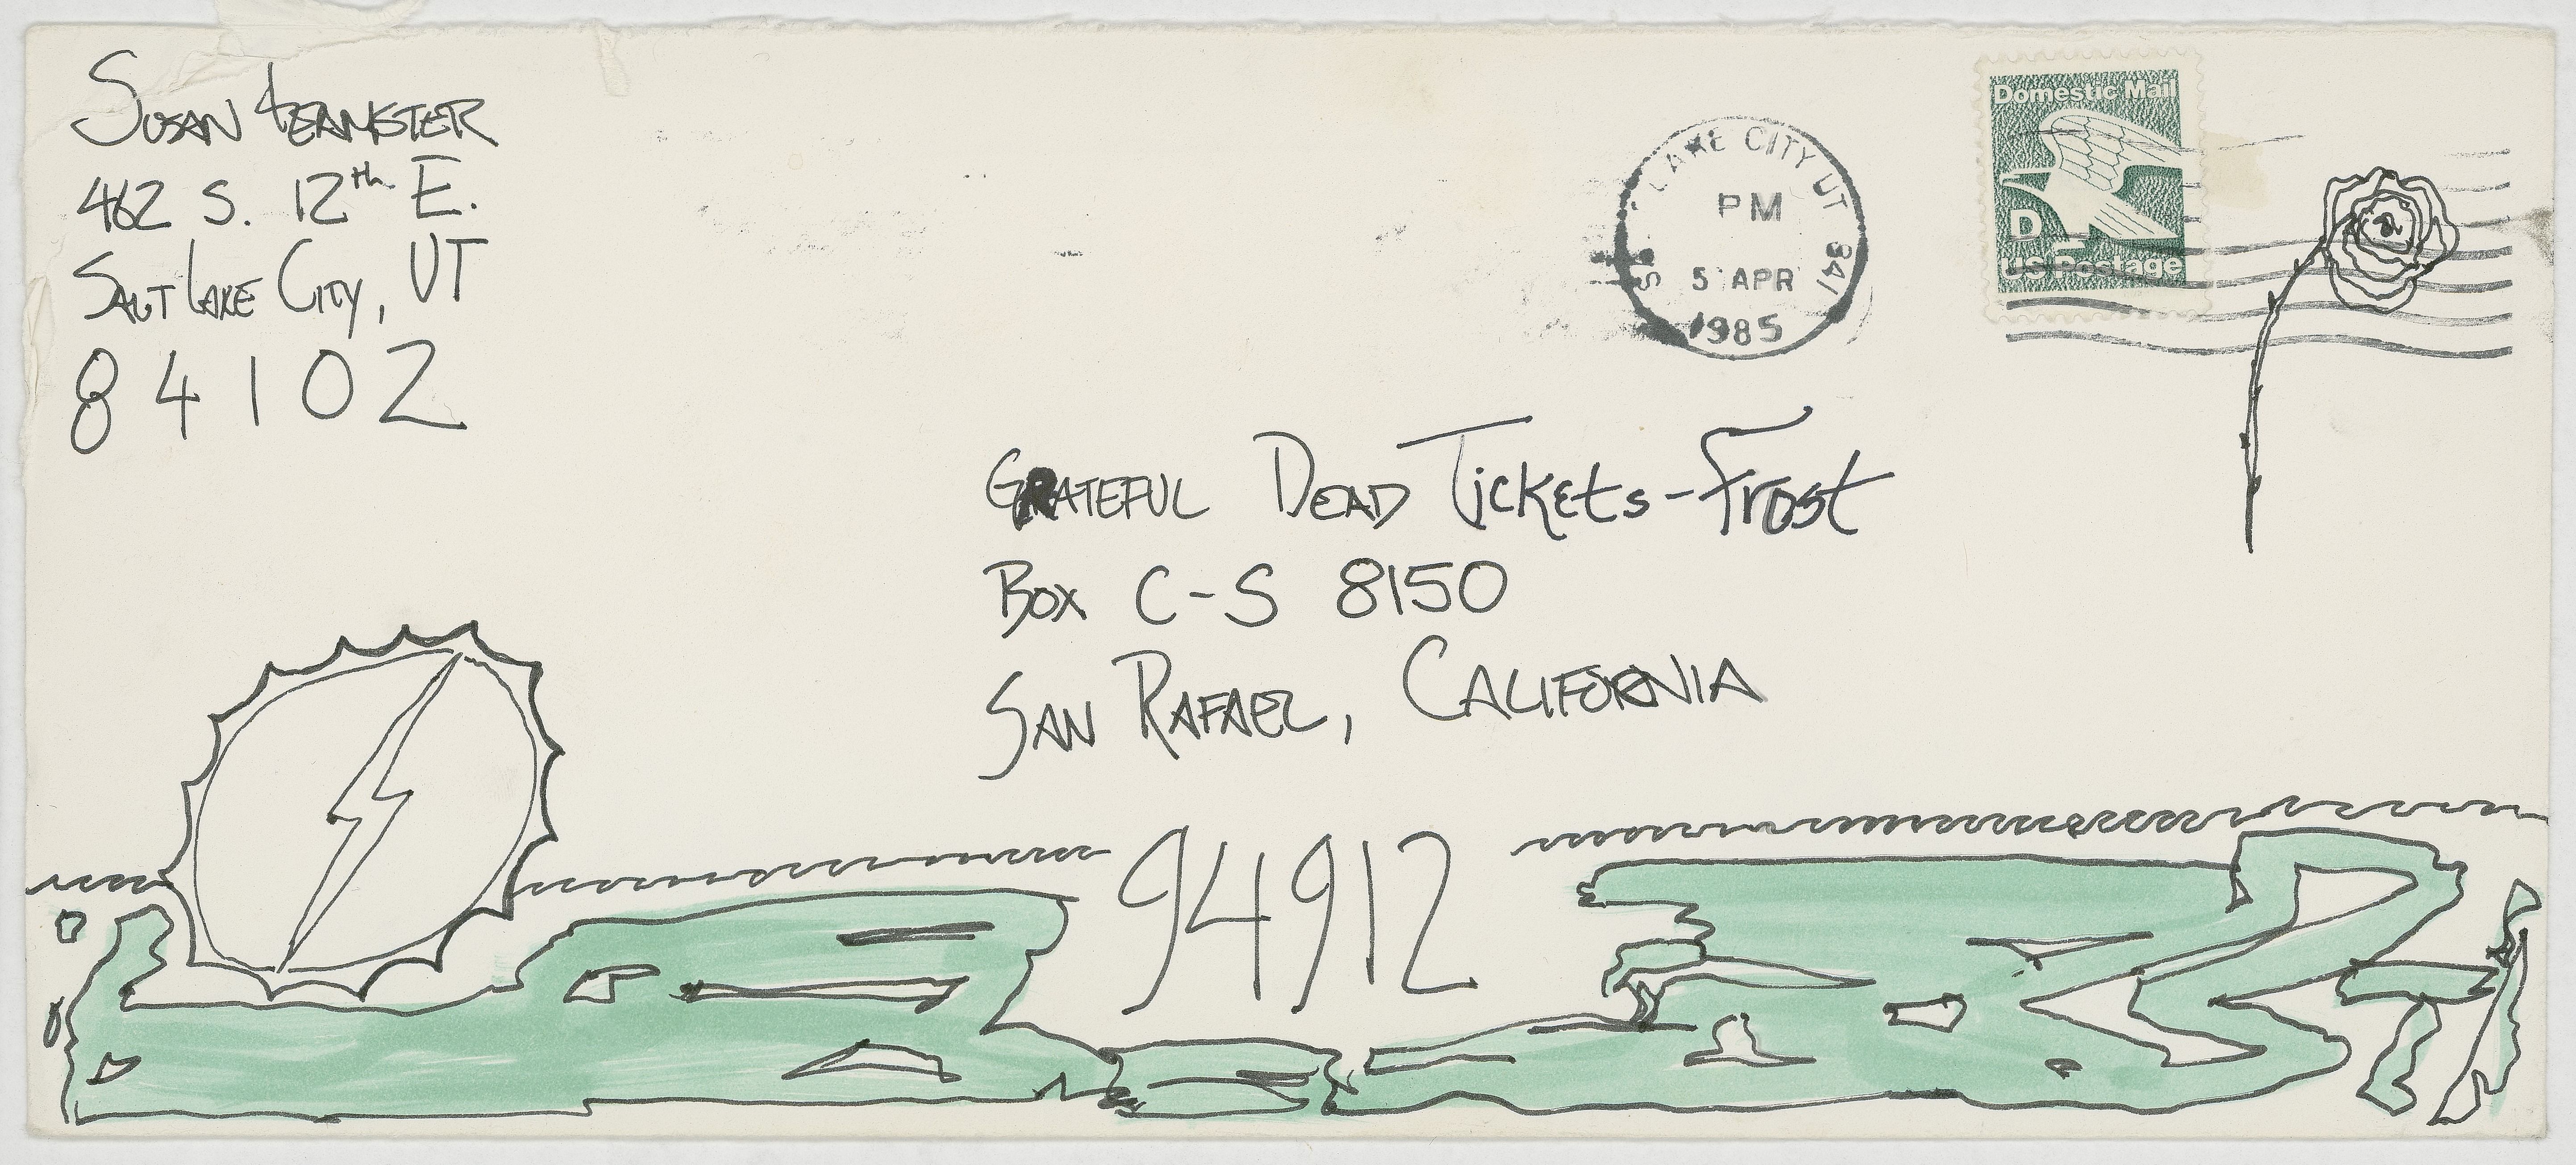 SUSAN
462 S. 12th E.
SALT LAKE CITY, UT
84102
LAKE CITY UT 841
PM
5 APR
1985
Domestic Mail
D
US Postage
GRATEFUL DEAD TICKETS-FROST
BOX C-S 8150
SAN RAFAEL, CALIFORNIA
94912